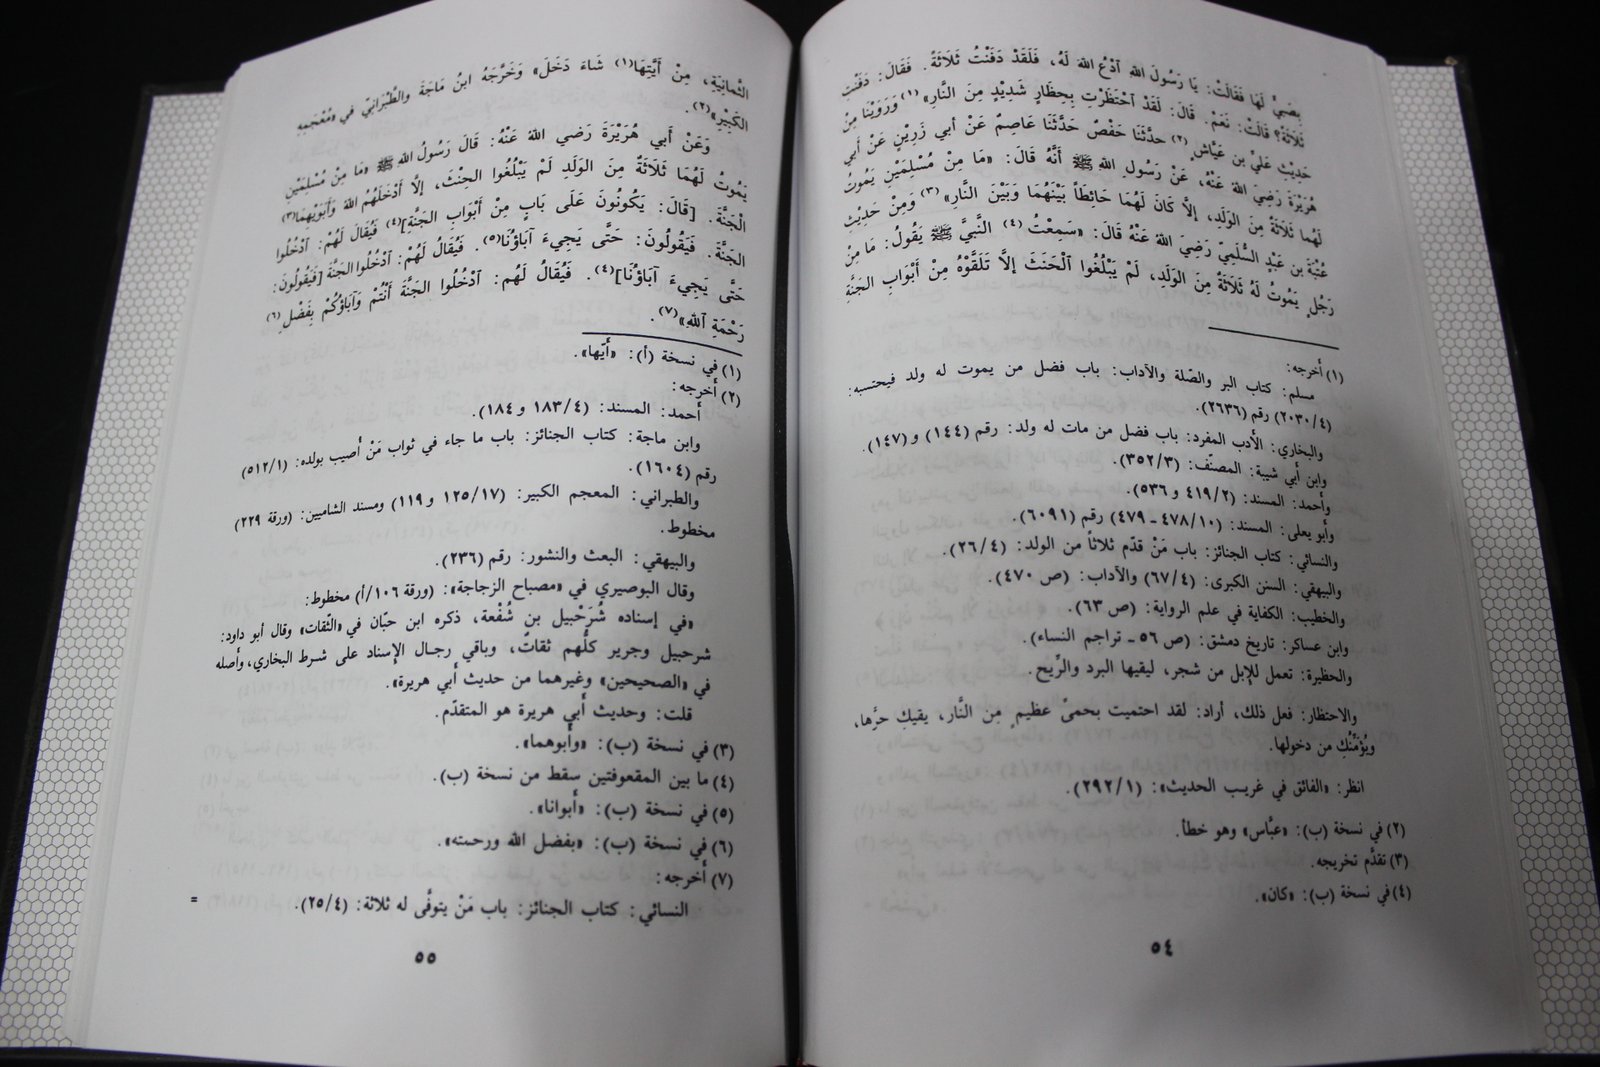 بِصَبِيٍّ لَهَا فَقَالَتْ: يَا رَسُولَ اللهِ آدْعُ اللهَ لَهُ، فَلَقَدْ دَفَنْتُ ثَلَاثَةً. فَقَالَ: دَفَنْتِ
ثَلَاثَةً؟ قَالَتْ: نَعَمْ. قَالَ: لَقَدْ آحْتَظَرْتِ بِحِظَارٍ شَدِيْدٍ مِنَ النَّارِ»(١) وَرَوَيْنَا مِنْ
حَدِيْثِ عَلَيِّ بن عَيَّاشٍ(٢) حَدَّثَنَا حَفْصٌ حَدَّثَنَا عَاصِمٌ عَنْ أبي زَرِيْنٍ عَنْ أبي
هُرَيْرَةَ رَضِيَ اللهُ عَنْهُ، عَنْ رَسُولِ اللهِ ﷺ أَنَّهُ قَالَ: «مَا مِنْ مُسْلِمَيْنِ يَمُوتُ
لَهُما ثَلَاثَةٌ مِنَ الوَلَدِ، إلَّا كَانَ لَهُمَا حَائِطَاً بَيْنَهُمَا وَبَيْنَ النَّارِ»(٣) وَمِنْ حَدِيْثِ
عُتْبَةَ بن عَبْدٍ السُّلَمِيّ رَضِيَ اللهُ عَنْهُ قَالَ: «سَمِعْتُ(٤) النَّبيَّ ﷺ يَقُولُ: مَا مِنْ
رَجُلٍ يَمُوتُ لَهُ ثَلَاثَةٌ مِنَ الوَلَدِ، لَمْ يَبْلُغُوا آلْحَنَثَ إلَّا تَلَقَّوْهُ مِنْ أَبْوَابِ الجَنَّةِ
(١) أخرجه:
مسلم: كتاب البر والصّلة والآداب: باب فضل من يموت له ولد فيحتسبه:
(٢٠٣٠/٤) رقم (٢٦٣٦).
والبخاري: الأدب المفرد: باب فضل من مات له ولد: رقم (١٤٤) و (١٤٧).
وابن أبي شيبة: المصنّف: (٣٥٢/٣).
وأحمد: المسند: (٤١٩/٢ و ٥٣٦).
وأبو يعلى: المسند: (٤٧٨/١٠ ـ ٤٧٩) رقم (٦٠٩١).
والنسائي: كتاب الجنائز: باب مَنْ قدّم ثلاثاً من الولد: (٢٦/٤).
والبيهقي: السنن الكبرى: (٦٧/٤) والآداب: (ص ٤٧٠).
والخطيب: الكفاية في علم الرواية: (ص ٦٣).
وابن عساكر: تاريخ دمشق: (ص ٥٦ ـ تراجم النساء).
والحظيرة: تعمل للإبل من شجر، ليقيها البرد والرّيح.
والاحتظار: فعل ذلك، أراد: لقد احتميت بحمىً عظيمٍ مِن النَّار، يقيك حرّها،
ويُؤمِّنُكِ من دخولها.
انظر: «الفائق في غريب الحديث»: (٢٩٢/١).
(٢) في نسخة (ب): «عبَّاس» وهو خطأ.
(٣) تقدَّم تخريجه.
(٤) في نسخة (ب): «كان».
٥٤
الثَّمانِيَةِ، مِنْ أَيَّتِهَا(١) شَاءَ دَخَلَ» وَخَرَّجَهُ ابنُ مَاجَةَ والطَّبَرَانِيّ في «مُعْجَمِهِ
الكَبِيْرِ»(٢).
وَعَنْ أَبي هُرَيْرَةَ رَضي اللهُ عَنْهُ: قَالَ رَسُولُ اللهِ ﷺ «مَا مِنْ مُسْلَمَيْنِ
يَمُوتُ لَهُمَا ثَلَاثَةٌ مِنَ الوَلَدِ لَمْ يَبْلُغُوا الحِنْثَ، إلَّا أَدْخَلَهُمُ اللهُ وَأَبَوَيْهِمَا(٣)
الْجَنَّةَ. [قَالَ: يَكُونُونَ عَلَى بَابٍ مِنْ أَبْوَابِ الجَنَّةِ](٤) فَيُقَالُ لَهُمْ: آدْخُلُوا
الجَنَّةَ. فَيَقُولُونَ: حَتَّى يَجِيءَ آبَاؤُنَا(٥). فَيُقَالُ لَهُمْ: آدْخُلُوا الجَنَّةَ [فَيَقُولُونَ:
حَتَّى يَجِيءَ آبَاؤُنَا](٤). فَيُقَالُ لَهُم: آدْخُلُوا الجَنَّةَ أَنْتُمْ وَآبَاؤُكُمْ بِفَضْلِ(٦)
رَحْمَةِ آللهِ»(٧).
(١) في نسخة (أ): «أيّها».
(٢) أخرجه:
أحمد: المسند: (١٨٣/٤ و ١٨٤).
وابن ماجة: كتاب الجنائز: باب ما جاء في ثواب مَنْ أصيب بولده: (٥١٢/١)
رقم (١٦٠٤).
والطبراني: المعجم الكبير: (١٢٥/١٧ و ١١٩) ومسند الشاميين: (ورقة ٢٢٩)
مخطوط.
والبيهقي: البعث والنشور: رقم (٢٣٦).
وقال البوصيري في «مصباح الزجاجة»: (ورقة ١٠٦/أ) مخطوط:
«في إسناده شُرَحْبيل بن شُفْعة، ذكره ابن حبّان في «الثّقات» وقال أبو داود:
شرحبيل وجرير كلُّهم ثقاتٌ، وباقي رجال الإسناد على شرط البخاري، وأصله
في «الصحيحين» وغيرهما من حديث أبي هريرة».
قلت: وحديث أبي هريرة هو المتقدّم.
(٣) في نسخة (ب): «وأبوهما».
(٤) ما بين المقعوفتين سقط من نسخة (ب).
(٥) في نسخة (ب): «أبوانا».
(٦) في نسخة (ب): «بفضل الله ورحمته».
(٧) أخرجه:
النسائي: كتاب الجنائز: باب مَنْ يتوفَّى له ثلاثة: (٢٥/٤). =
٥٥